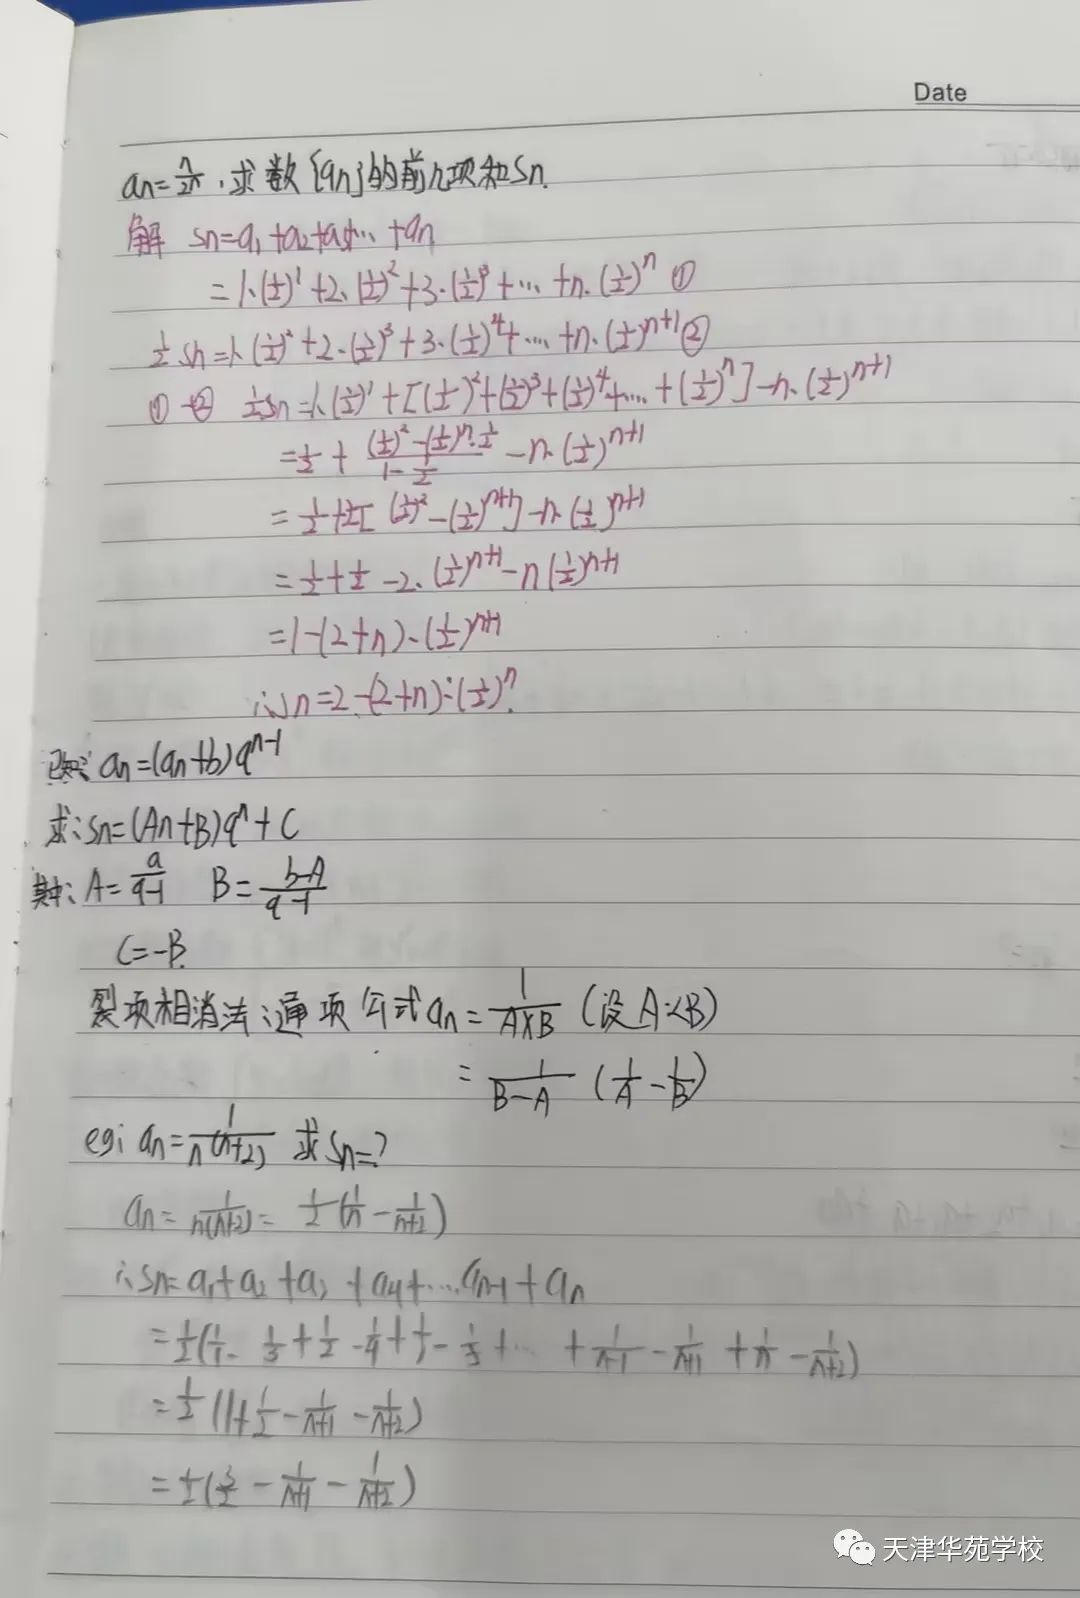 Date
an=n/2ⁿ,求数{an}的前n项和Sn.
解 Sn=a₁+a₂+a₃+…+an
=1·(1/2)¹+2·(1/2)²+3·(1/2)³+…+n·(1/2)ⁿ ①
1/2 Sn=1·(1/2)²+2·(1/2)³+3·(1/2)⁴+…+n·(1/2)ⁿ⁺¹ ②
①-② 1/2 Sn=1·(1/2)¹+[(1/2)²+(1/2)³+(1/2)⁴+…+(1/2)ⁿ]-n·(1/2)ⁿ⁺¹
=1/2+((1/2)²-(1/2)ⁿ·1/2)/(1-1/2)-n·(1/2)ⁿ⁺¹
=1/2+2[(1/2)²-(1/2)ⁿ⁺¹]-n·(1/2)ⁿ⁺¹
=1/2+1/2-2·(1/2)ⁿ⁺¹-n(1/2)ⁿ⁺¹
=1-(2+n)·(1/2)ⁿ⁺¹
∴Sn=2-(2+n)·(1/2)ⁿ.
已知:an=(an+b)qⁿ⁻¹
求:Sn=(An+B)qⁿ+C
其中:A=a/(q-1) B=(b-A)/(q-1)
C=-B.
裂项相消法:通项公式an=1/(A×B) (设A<B)
=1/(B-A) (1/A-1/B)
eg: an=1/n(n+2) 求Sn=?
an=1/n(n+2)=1/2(1/n-1/(n+2))
∴Sn=a₁+a₂+a₃+a₄+…an-1+an
=1/2(1/1-1/3+1/2-1/4+1/3-1/5+…+1/(n-1)-1/(n+1)+1/n-1/(n+2))
=1/2(1+1/2-1/(n+1)-1/(n+2))
=1/2(3/2-1/(n+1)-1/(n+2))
天津华苑学校